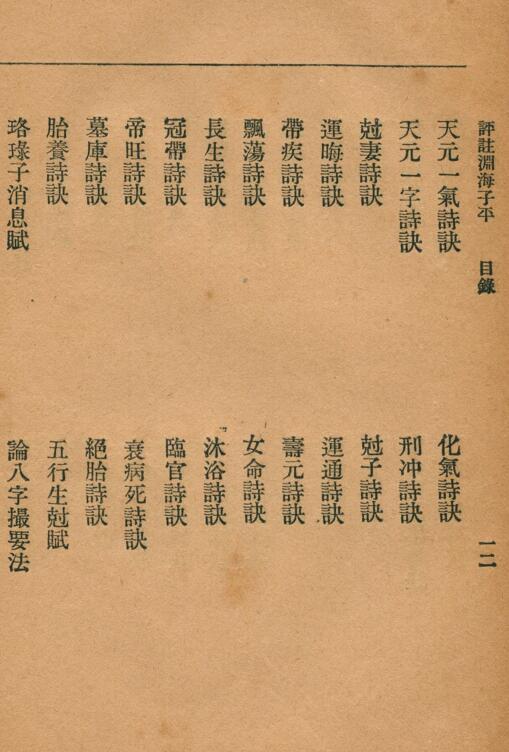 評註淵海子平　目錄　一二
天元一氣詩訣　化氣詩訣
天元一字詩訣　刑冲詩訣
尅妻詩訣　尅子詩訣
運晦詩訣　運通詩訣
帶疾詩訣　壽元詩訣
飄蕩詩訣　女命詩訣
長生詩訣　沐浴詩訣
冠帶詩訣　臨官詩訣
帝旺詩訣　衰病死詩訣
墓庫詩訣　絕胎詩訣
胎養詩訣　五行生尅賦
珞琭子消息賦　論八字撮要法